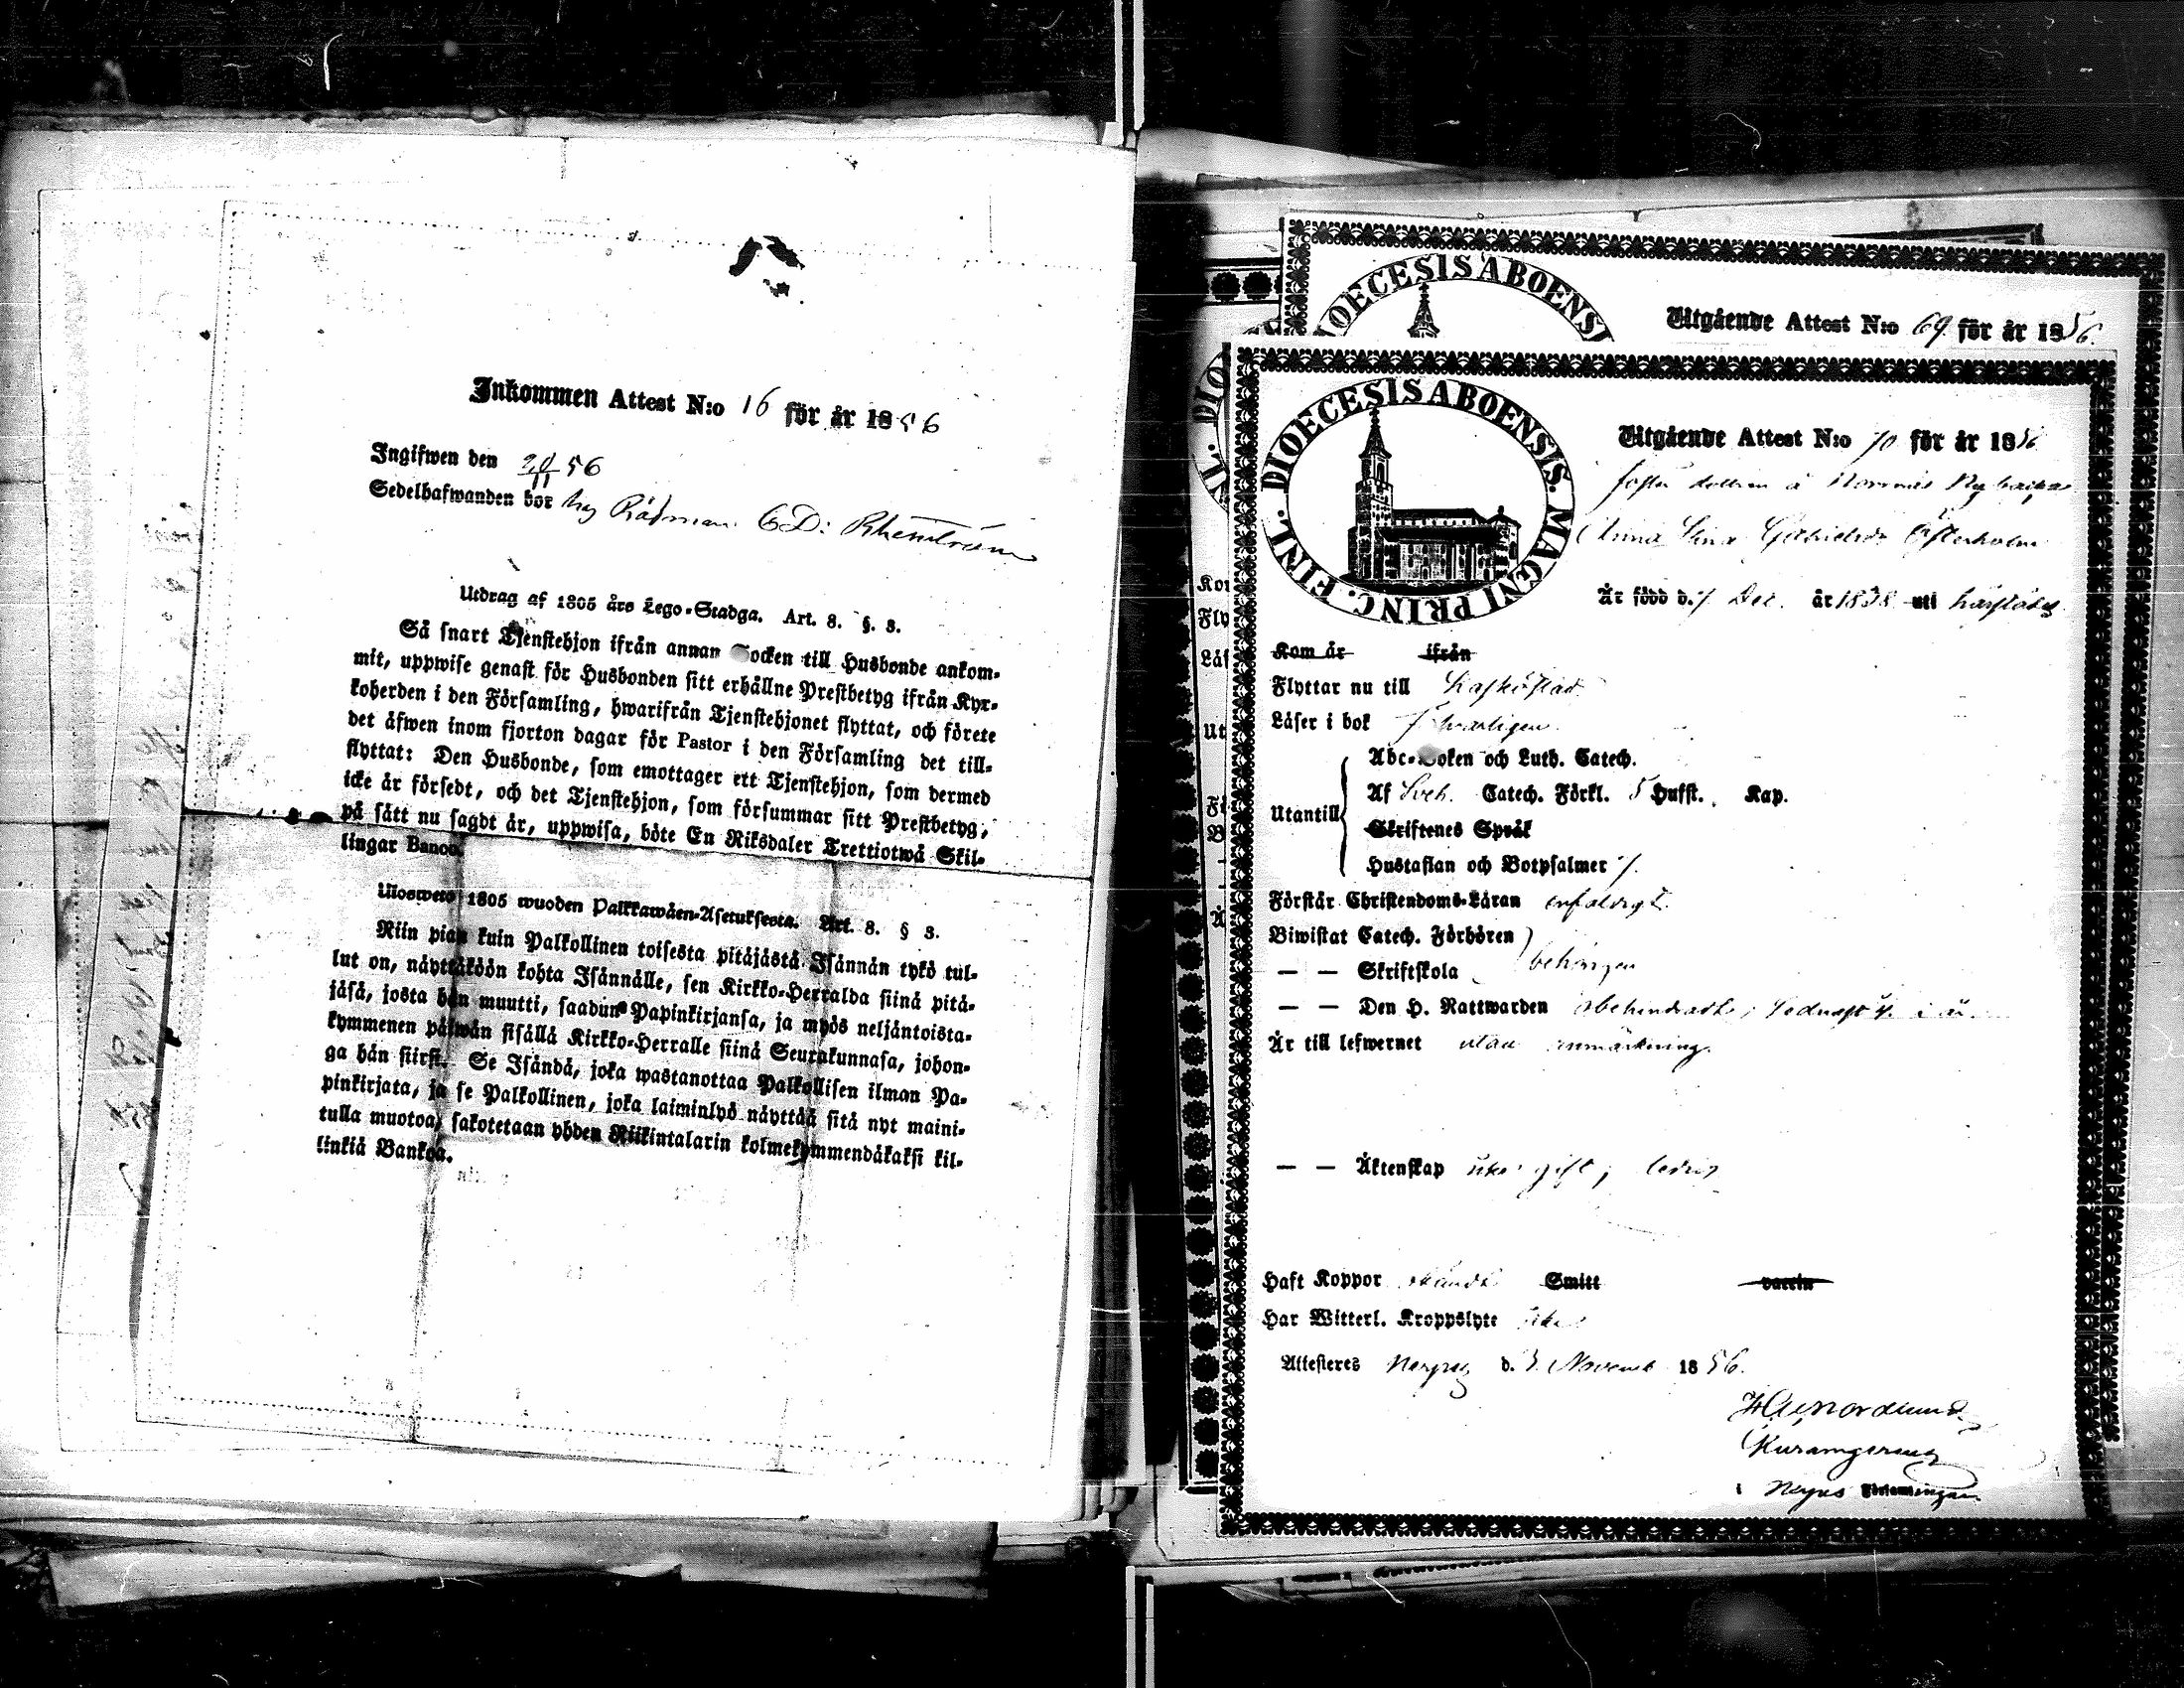 Inkommen Attest N:o 16 för år 1856
Ingifwen den 20/11 56
Sedelhafwanden bor hos Rådman C D: Rhenström
Utdrag af 1805 års Lego-Stadga. Art. 8. §. 3.
Så snart Tjenstehjon ifrån annan Socken till Husbonde ankom-
mit, uppwise genast för Husbonden sitt erhållne Prestbetyg ifrån Kyr-
koherden i den Församling, hwarifrån Tjenstehjonet flyttat, och förete
det äfwen inom fjorton dagar för Pastor i den Församling det till-
flyttat: Den Husbonde, som emottager ett Tjenstehjon, som dermed
icke är försedt, och det Tjenstehjon, som försummar sitt Prestbetyg,
på sätt nu sagdt är, uppwisa, böte En Riksdaler Trettiotwå Skil-
lingar Banco.
Ulosweto 1805 wuoden Palkkawäen-Asetuksesta. Art. 8. § 3.
Niin pian kuin Palkollinen toisesta pitäjästä Isännän tykö tul-
lut on, näyttäköön kohta Isännälle, sen Kirkko-Herralda siinä pitä-
jäsä, josta hän muutti, saadun Papinkirjansa, ja myös neljäntoista-
kymmenen päiwän sisällä Kirkko-Herralle siinä Seurakunnasa, johon-
ga hän siirsi. Se Isändä, joka wastanottaa Palkollisen ilman Pa-
pinkirjata, ja se Palkollinen, joka laiminlyö näyttää sitä nyt maini-
tulla muotoa, sakotetaan yhden Riikintalarin kolmekymmendäkaksi kil-
linkiä Bankoa.
Utgående Attest N:o 69 för år 1856.
DIOECESIS ABOENSI
Utgående Attest N:o 70 för år 1856
DIOECESIS ABOENSIS. MAGNI PRINC. FINL.
dottren å
Anna Gabrielsdr Österholm
Är född d. 7 Dec. år 1838 uti
Kom år ifrån
Flyttar nu till
Läser i bok
Utantill
Abc-Boken och Luth. Catech.
Af Sveb. Catech. Förkl. 5 Hufst. Kap.
Skriftenes Språk
Hustaflan och Botpsalmer
Förstår Christendoms-Läran enfaldigt.
Biwistat Catech. Förhören
— — Skriftskola behörigen
— — Den H. Nattwarden obehindradt; sednast
Är till lefwernet utan anmärkning.
— — Äktenskap icke gift; ledig
Haft Koppor Smitt vaccin
Har Witterl. Kroppslyte icke
Attesteres d. 3 Novemb 1856.
Nordlund
i Församlingen